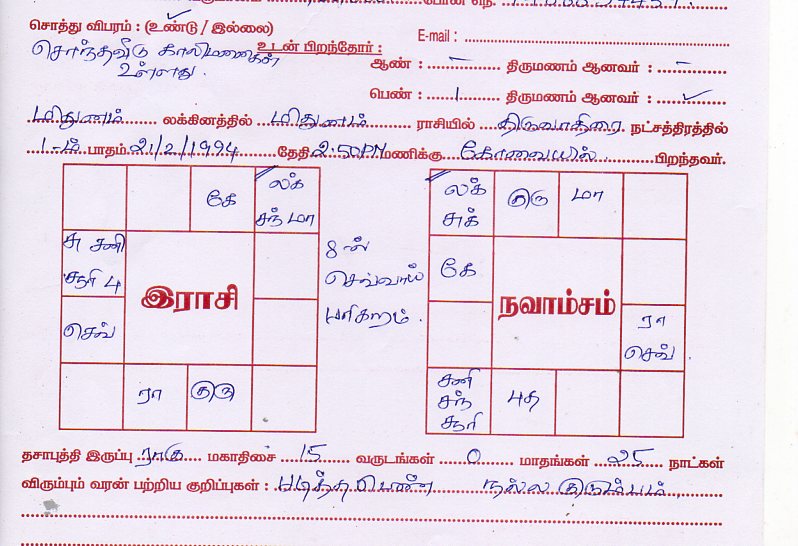 போன் எண்.
சொத்து விபரம் : (உண்டு / இல்லை)
E-mail :
சொந்தவீடு காலிமனைகள்
உள்ளது.
உடன் பிறந்தோர் :
ஆண் : — திருமணம் ஆனவர் : —
பெண் : 1 திருமணம் ஆனவர் : ✓
மிதுனம் லக்கினத்தில் மிதுனம் ராசியில் திருவாதிரை நட்சத்திரத்தில்
1-ம் பாதம் 21/2/1994 தேதி 2.50PM மணிக்கு கோவையில் பிறந்தவர்.
கே லக் சந் மா
சு சனி சூரி பு
செவ்
ரா குரு
இராசி
8ல் செவ்வாய் பரிகாரம்.
லக் சுக் குரு மா
கே
ரா செவ்
சனி சந் சூரி புத
நவாம்சம்
தசாபுத்தி இருப்பு ராகு மகாதிசை 15 வருடங்கள் 0 மாதங்கள் 25 நாட்கள்
விரும்பும் வரன் பற்றிய குறிப்புகள் : படித்த பெண் நல்ல குடும்பம்